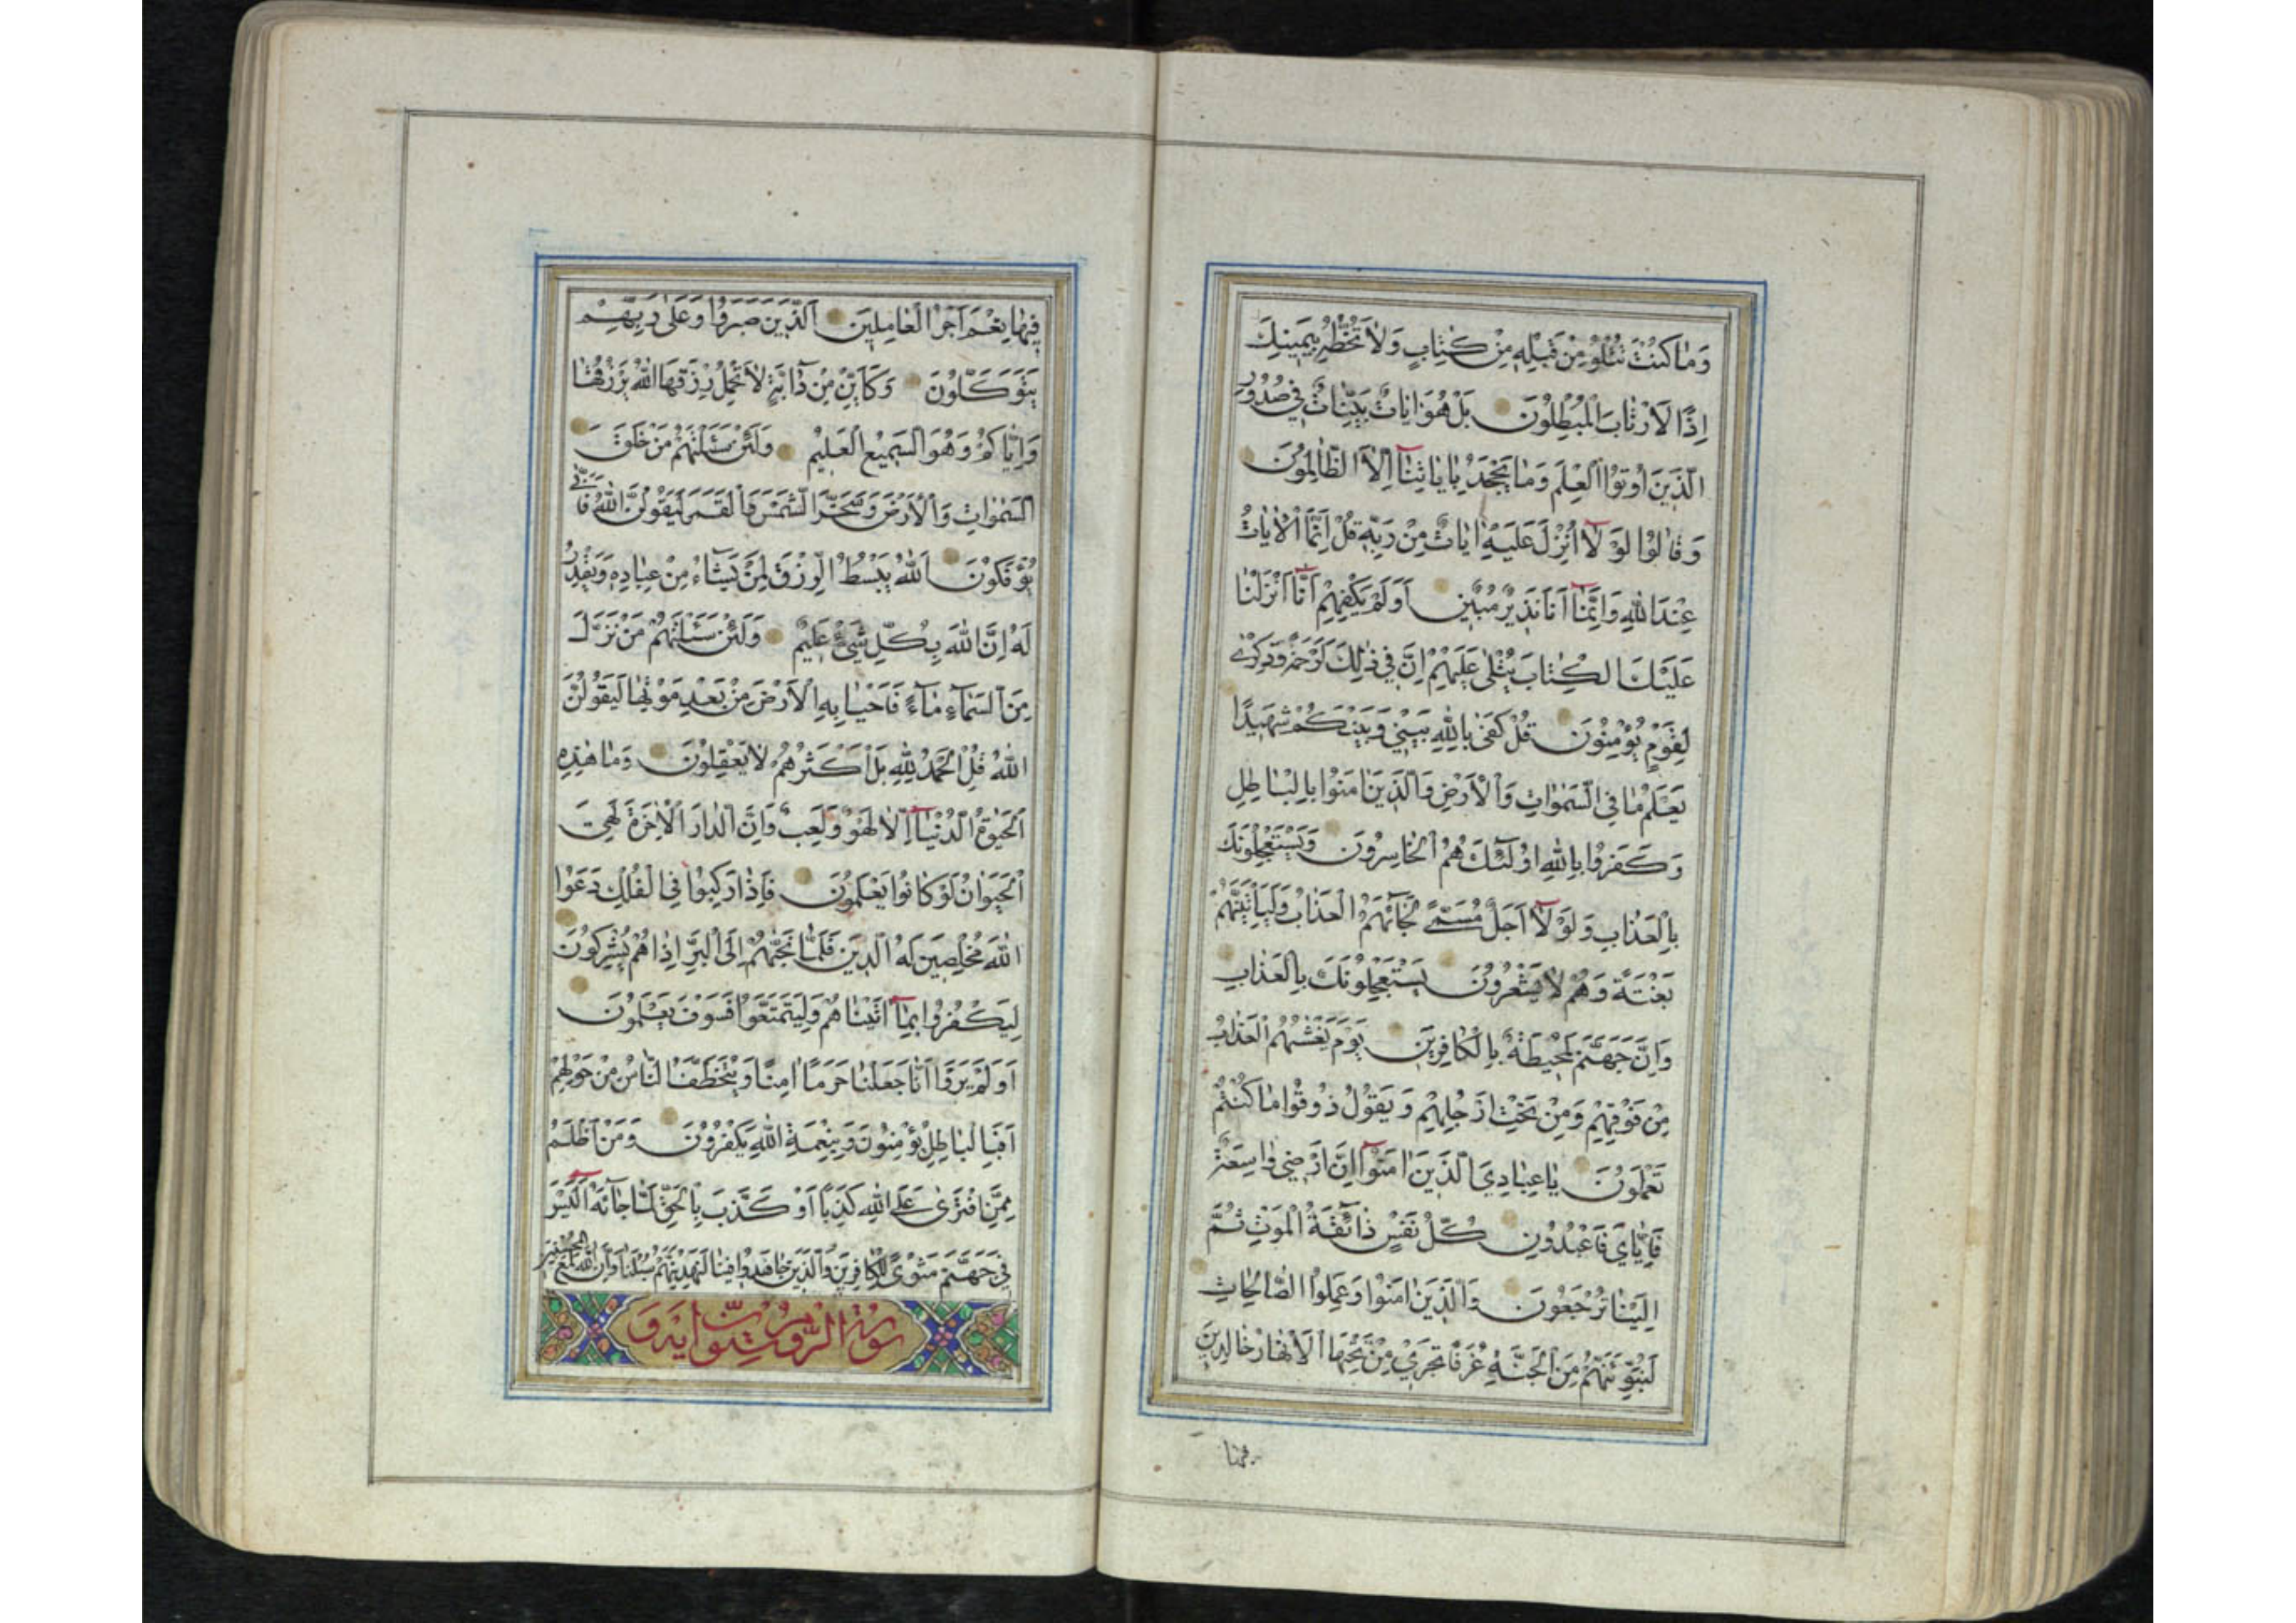 وَمَا كُنْتَ تَتْلُو مِنْ قَبْلِهِ مِنْ كِتَابٍ وَلَا تَخُطُّهُ بِيَمِينِكَ
اِذًا لَارْتَابَ الْمُبْطِلُونَ بَلْ هُوَ اٰيَاتٌ بَيِّنَاتٌ فِي صُدُورِ
الَّذِينَ اُوتُوا الْعِلْمَ وَمَا يَجْحَدُ بِاٰيَاتِنَا اِلَّا الظَّالِمُونَ
وَقَالُوا لَوْلَا اُنْزِلَ عَلَيْهِ اٰيَاتٌ مِنْ رَبِّهِ قُلْ اِنَّمَا الْاٰيَاتُ
عِنْدَ اللّٰهِ وَاِنَّمَا اَنَا نَذِيرٌ مُبِينٌ اَوَلَمْ يَكْفِهِمْ اَنَّا اَنْزَلْنَا
عَلَيْكَ الْكِتَابَ يُتْلٰى عَلَيْهِمْ اِنَّ فِي ذٰلِكَ لَرَحْمَةً وَذِكْرٰى
لِقَوْمٍ يُؤْمِنُونَ قُلْ كَفٰى بِاللّٰهِ بَيْنِي وَبَيْنَكُمْ شَهِيدًا
يَعْلَمُ مَا فِي السَّمٰوَاتِ وَالْاَرْضِ وَالَّذِينَ اٰمَنُوا بِالْبَاطِلِ
وَكَفَرُوا بِاللّٰهِ اُولٰٓئِكَ هُمُ الْخَاسِرُونَ وَيَسْتَعْجِلُونَكَ
بِالْعَذَابِ وَلَوْلَا اَجَلٌ مُسَمًّى لَجَآئَهُمُ الْعَذَابُ وَلَيَأْتِيَنَّهُمْ
بَغْتَةً وَهُمْ لَا يَشْعُرُونَ يَسْتَعْجِلُونَكَ بِالْعَذَابِ
وَاِنَّ جَهَنَّمَ لَمُحِيطَةٌ بِالْكَافِرِينَ يَوْمَ يَغْشٰيهُمُ الْعَذَابُ
مِنْ فَوْقِهِمْ وَمِنْ تَحْتِ اَرْجُلِهِمْ وَيَقُولُ ذُوقُوا مَا كُنْتُمْ
تَعْمَلُونَ يَا عِبَادِيَ الَّذِينَ اٰمَنُوا اِنَّ اَرْضِي وَاسِعَةٌ
فَاِيَّايَ فَاعْبُدُونِ كُلُّ نَفْسٍ ذَآئِقَةُ الْمَوْتِ ثُمَّ
اِلَيْنَا تُرْجَعُونَ وَالَّذِينَ اٰمَنُوا وَعَمِلُوا الصَّالِحَاتِ
لَنُبَوِّئَنَّهُمْ مِنَ الْجَنَّةِ غُرَفًا تَجْرِي مِنْ تَحْتِهَا الْاَنْهَارُ خَالِدِينَ
فيها
فِيهَا نِعْمَ اَجْرُ الْعَامِلِينَ اَلَّذِينَ صَبَرُوا وَعَلٰى رَبِّهِمْ
يَتَوَكَّلُونَ وَكَاَيِّنْ مِنْ دَآبَّةٍ لَا تَحْمِلُ رِزْقَهَا اللّٰهُ يَرْزُقُهَا
وَاِيَّاكُمْ وَهُوَ السَّمِيعُ الْعَلِيمُ وَلَئِنْ سَئَلْتَهُمْ مَنْ خَلَقَ
السَّمٰوَاتِ وَالْاَرْضَ وَسَخَّرَ الشَّمْسَ وَالْقَمَرَ لَيَقُولُنَّ اللّٰهُ فَاَنّٰى
يُؤْفَكُونَ اَللّٰهُ يَبْسُطُ الرِّزْقَ لِمَنْ يَشَآءُ مِنْ عِبَادِهِ وَيَقْدِرُ
لَهُ اِنَّ اللّٰهَ بِكُلِّ شَيْءٍ عَلِيمٌ وَلَئِنْ سَئَلْتَهُمْ مَنْ نَزَّلَ
مِنَ السَّمَآءِ مَآءً فَاَحْيَا بِهِ الْاَرْضَ مِنْ بَعْدِ مَوْتِهَا لَيَقُولُنَّ
اللّٰهُ قُلِ الْحَمْدُ لِلّٰهِ بَلْ اَكْثَرُهُمْ لَا يَعْقِلُونَ وَمَا هٰذِهِ
الْحَيٰوةُ الدُّنْيَا اِلَّا لَهْوٌ وَلَعِبٌ وَاِنَّ الدَّارَ الْاٰخِرَةَ لَهِيَ
الْحَيَوَانُ لَوْ كَانُوا يَعْلَمُونَ فَاِذَا رَكِبُوا فِي الْفُلْكِ دَعَوُا
اللّٰهَ مُخْلِصِينَ لَهُ الدِّينَ فَلَمَّا نَجّٰيهُمْ اِلَى الْبَرِّ اِذَا هُمْ يُشْرِكُونَ
لِيَكْفُرُوا بِمَا اٰتَيْنَاهُمْ وَلِيَتَمَتَّعُوا فَسَوْفَ يَعْلَمُونَ
اَوَلَمْ يَرَوْا اَنَّا جَعَلْنَا حَرَمًا اٰمِنًا وَيُتَخَطَّفُ النَّاسُ مِنْ حَوْلِهِمْ
اَفَبِالْبَاطِلِ يُؤْمِنُونَ وَبِنِعْمَةِ اللّٰهِ يَكْفُرُونَ وَمَنْ اَظْلَمُ
مِمَّنِ افْتَرٰى عَلَى اللّٰهِ كَذِبًا اَوْ كَذَّبَ بِالْحَقِّ لَمَّا جَآئَهُ اَلَيْسَ
فِي جَهَنَّمَ مَثْوًى لِلْكَافِرِينَ وَالَّذِينَ جَاهَدُوا فِينَا لَنَهْدِيَنَّهُمْ سُبُلَنَا وَاِنَّ اللّٰهَ لَمَعَ الْمُحْسِنِينَ
سورة الروم ستون اية